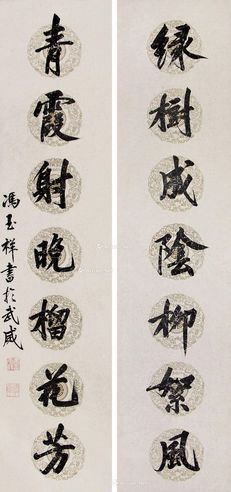 緑樹成陰柳絮風
青霞射晚榴花芳
馮玉祥書於武威